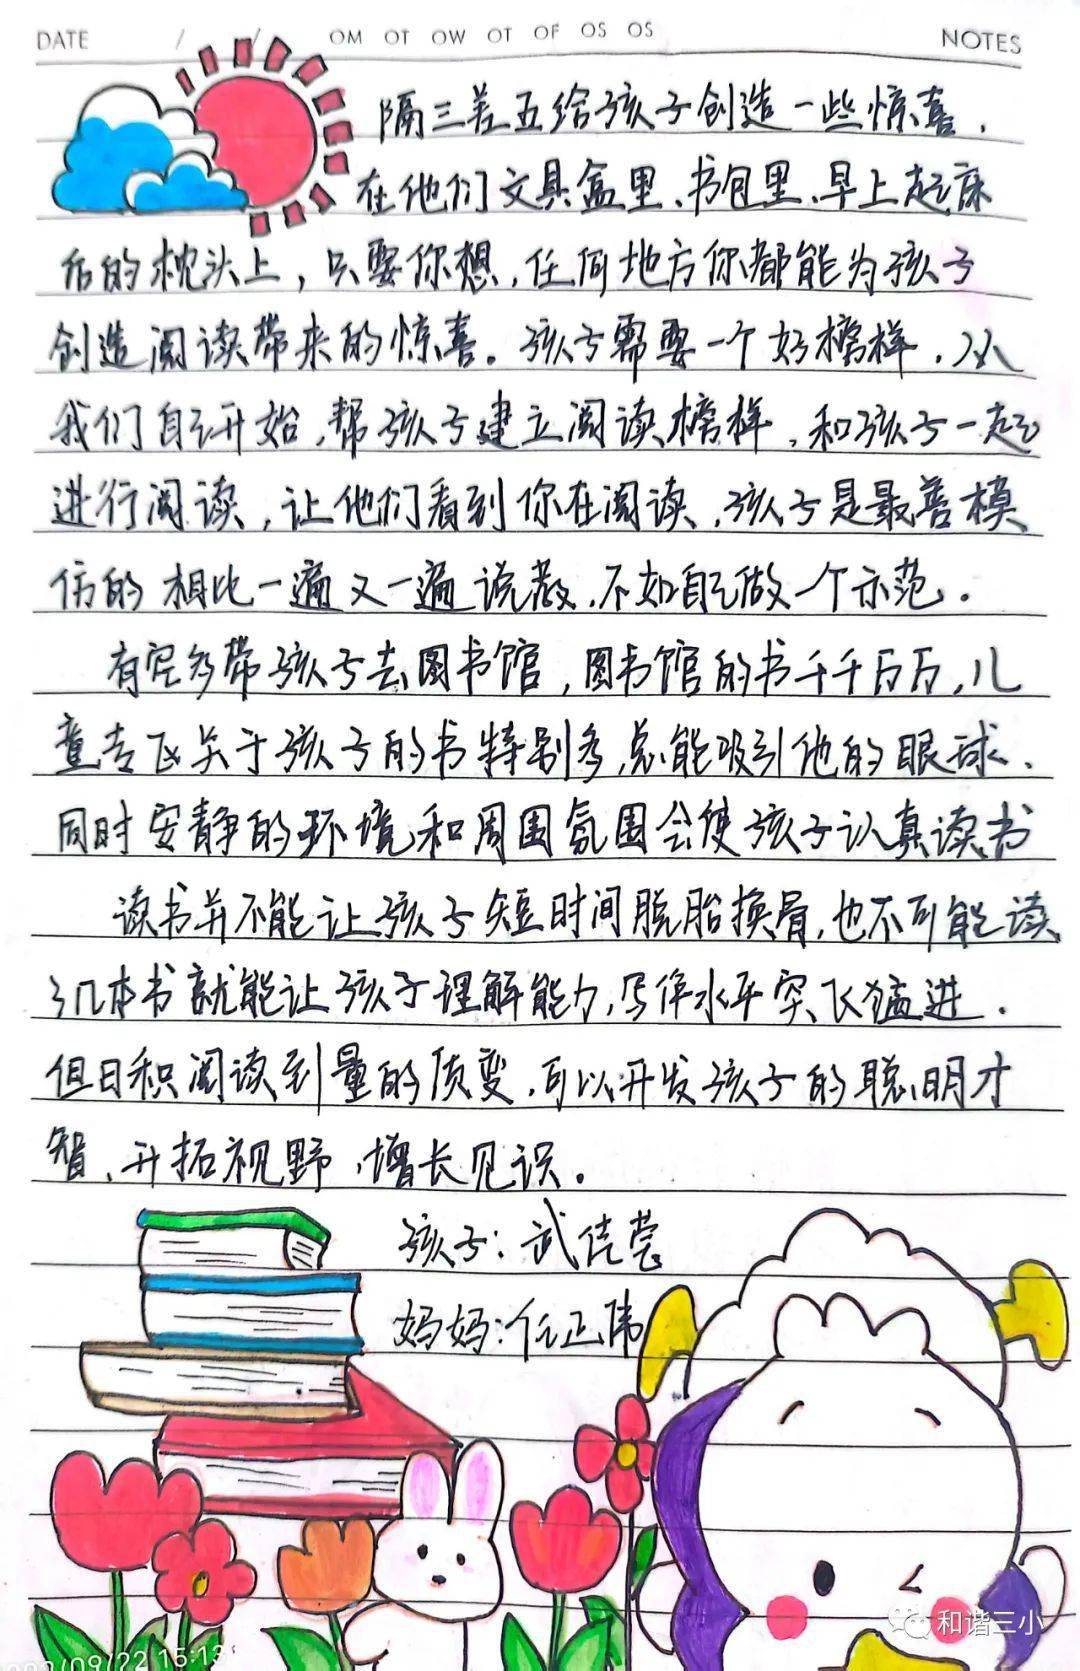 DATE / / OM OT OW OT OF OS OS NOTES
隔三差五给孩子创造一些惊喜，
在他们文具盒里、书包里、早上起床
后的枕头上，只要你想，任何地方你都能为孩子
创造阅读带来的惊喜。孩子需要一个好榜样，从
我们自己开始，帮孩子建立阅读榜样，和孩子一起
进行阅读，让他们看到你在阅读，孩子是最善模
仿的 相比一遍又一遍说教，不如自己做一个示范。
有空多带孩子去图书馆，图书馆的书千千万万，儿
童专区关于孩子的书特别多，总能吸引他的眼球、
同时安静的环境和周围氛围会使孩子认真读书
读书并不能让孩子短时间脱胎换骨，也不可能读
几本书就能让孩子理解能力，写作水平突飞猛进．
但日积阅读到量的质变，可以开发孩子的聪明才
智、开拓视野，增长见识。
孩子：武佳莹
妈妈：任正伟
和谐三小
09/22 15:13